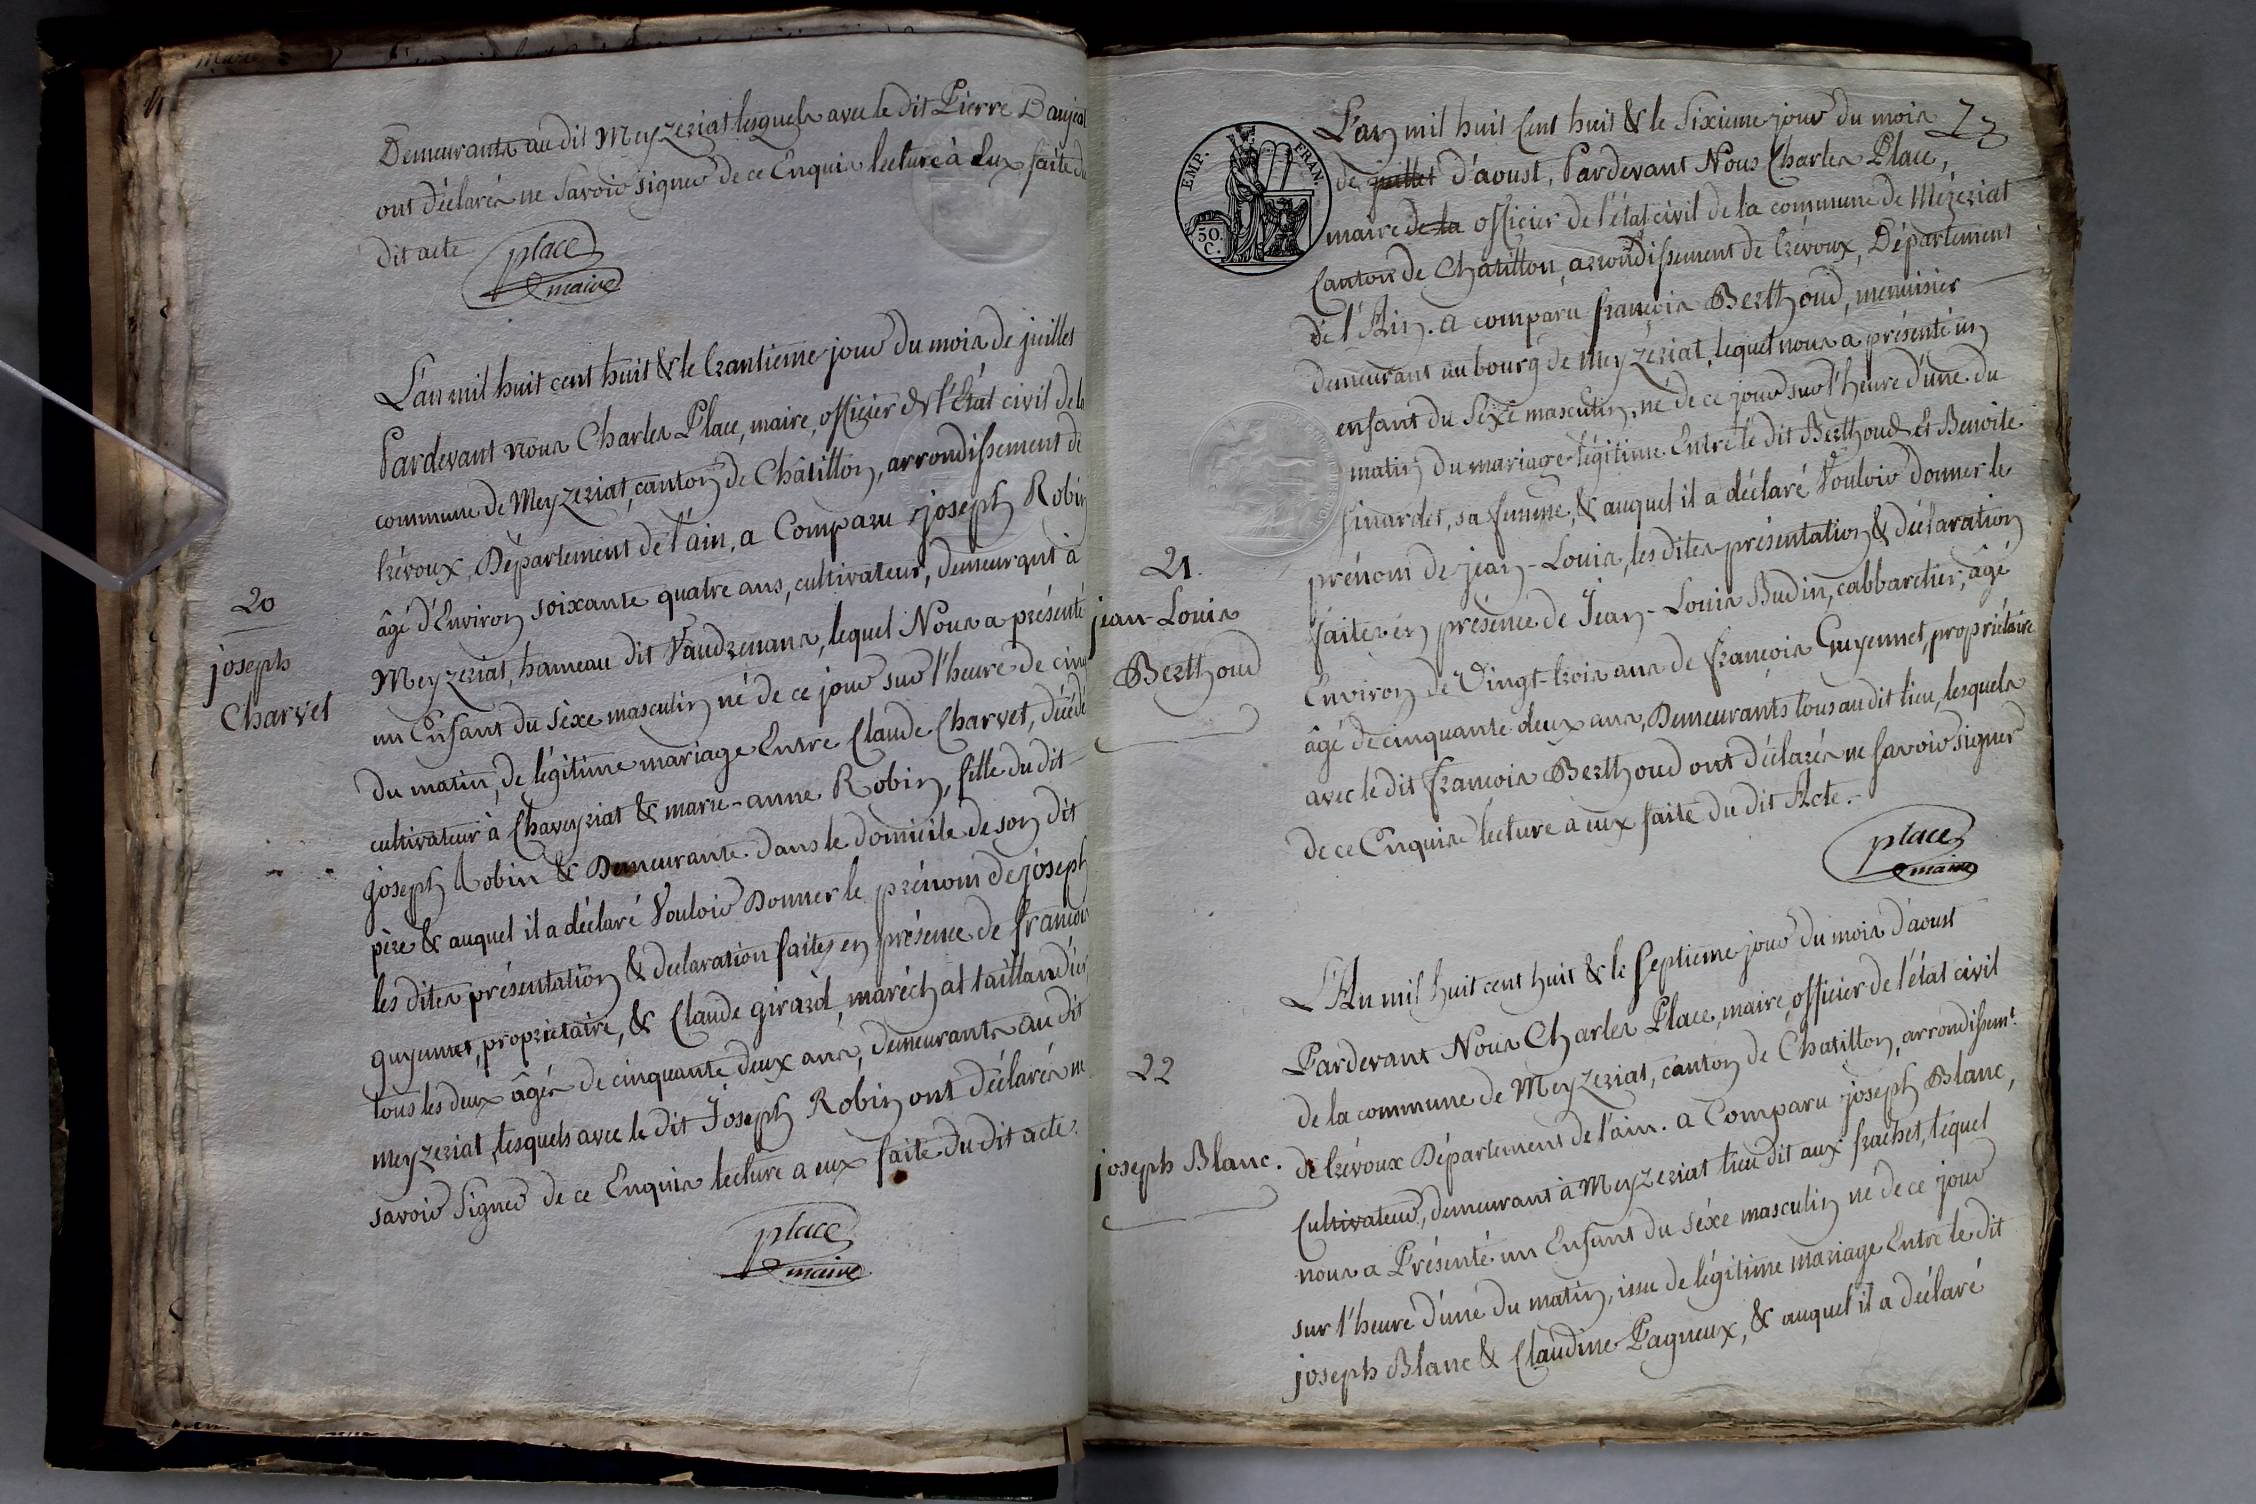 Demeurants au dit Meyzeriat lesquels avec le dit Pierre Baujeat
ont déclarés ne Savoir signer de ce Enquis lecture à Eux faite du
dit acte
place
maire
L'an mil huit cent huit & le trantieme jour du mois de juillet
Pardevant nous Charles Place, maire, officier de l'Etat civil de la
commune de Meyzeriat, canton de Châtillon, arrondissement de
trévoux, Département de l'ain, a Comparu joseph Robin
âgé d'Environ soixante quatre ans, cultivateur, demeurant à
Meyzeriat, hameau dit Vaudrenans, lequel Nous a présenté
un Enfant du séxe masculin né de ce jour sur l'heure de cinq
du matin, de légitime mariage Entre Claude Charvet, décédé
cultivateur à Chaveyriat & marie-anne Robin, fille du dit
joseph Robin & Demeurante dans le domicile de son dit
père & auquel il a déclaré Vouloir Donner le prénom de joseph
les dites présentation & declaration faites en présence de francois
guyennet, proprietaire, & Claude girard, maréchal taillandier
tous les deux âgés de cinquante deux ans, demeurants au dit
meyzeriat, lesquels avec le dit Joseph Robin ont déclarés ne
savoir Signer de ce Enquis lecture a eux faite du dit acte.
place
maire
20
joseph
Charvet
EMP. FRAN.
50
C.
L'an mil huit Cent huit & le Sixieme jour du mois
de juillet d'aoust, Pardevant Nous Charles Place,
maire de la officier de l'état civil de la commune de Mézeriat
Canton de Chatillon, arrondissement de trévoux, Département
de l'Ain. a comparu françois Berthoud, menuisier
demeurant au bourg de Meyzeriat, lequel nous a présenté un
enfant du Sexe masculin, né de ce jour sur l'heure d'une du
matin du mariage légitime Entre le dit Berthoud et Benoite
finardet, sa femme, & auquel il a déclaré Vouloir donner le
prénom de jean-Louis, les dites présentation & déclaration
faites en présence de Jean-Louis Budin, cabbaretier, âgé
Environ de Vingt-trois ans de françois Guyennet, propriétaire
âgé de cinquante deux ans, Demeurants tous au dit lieu, lesquels
avec le dit francois Berthoud ont déclarés ne Savoir signer
de ce Enquis lecture a eux faite du dit Acte.
place
maire
21.
jean-Louis
Berthoud
L'An mil huit cent huit & le septieme jour du mois d'aoust
Pardevant Nous Charles Place, maire, officier de l'état civil
de la commune de Meyzeriat, canton de Chatillon, arrondissemt.
de trévoux Département de l'ain. a Comparu joseph Blanc,
Cultivateur, demeurant à Meyzeriat lieu dit aux frachet, lequel
nous a Présenté un Enfant du séxe masculin né de ce jour
sur l'heure d'une du matin, issu de légitime mariage Entre le dit
joseph Blanc & Claudine Pagneux, & auquel il a déclaré
22
joseph Blanc.